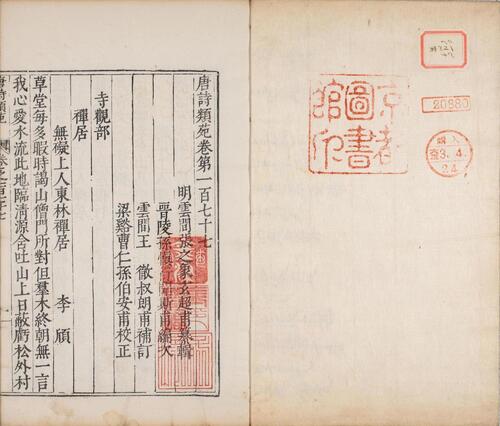 京都
圖書
館印
20880
購入
3. 4.
24
唐詩類苑卷第一百七十七
明雲間張之象玄超甫纂輯
晉陵孫甫編次
雲間王 徹叔朗甫補訂
梁谿曹仁孫伯安甫校正
寺觀部
禪居
無礙上人東林禪居 李頎
草堂每多暇時謁山僧門所對但羣木終朝無一言
我心愛水流此地臨清源含吐山上日蔽虧松外村
唐詩類苑